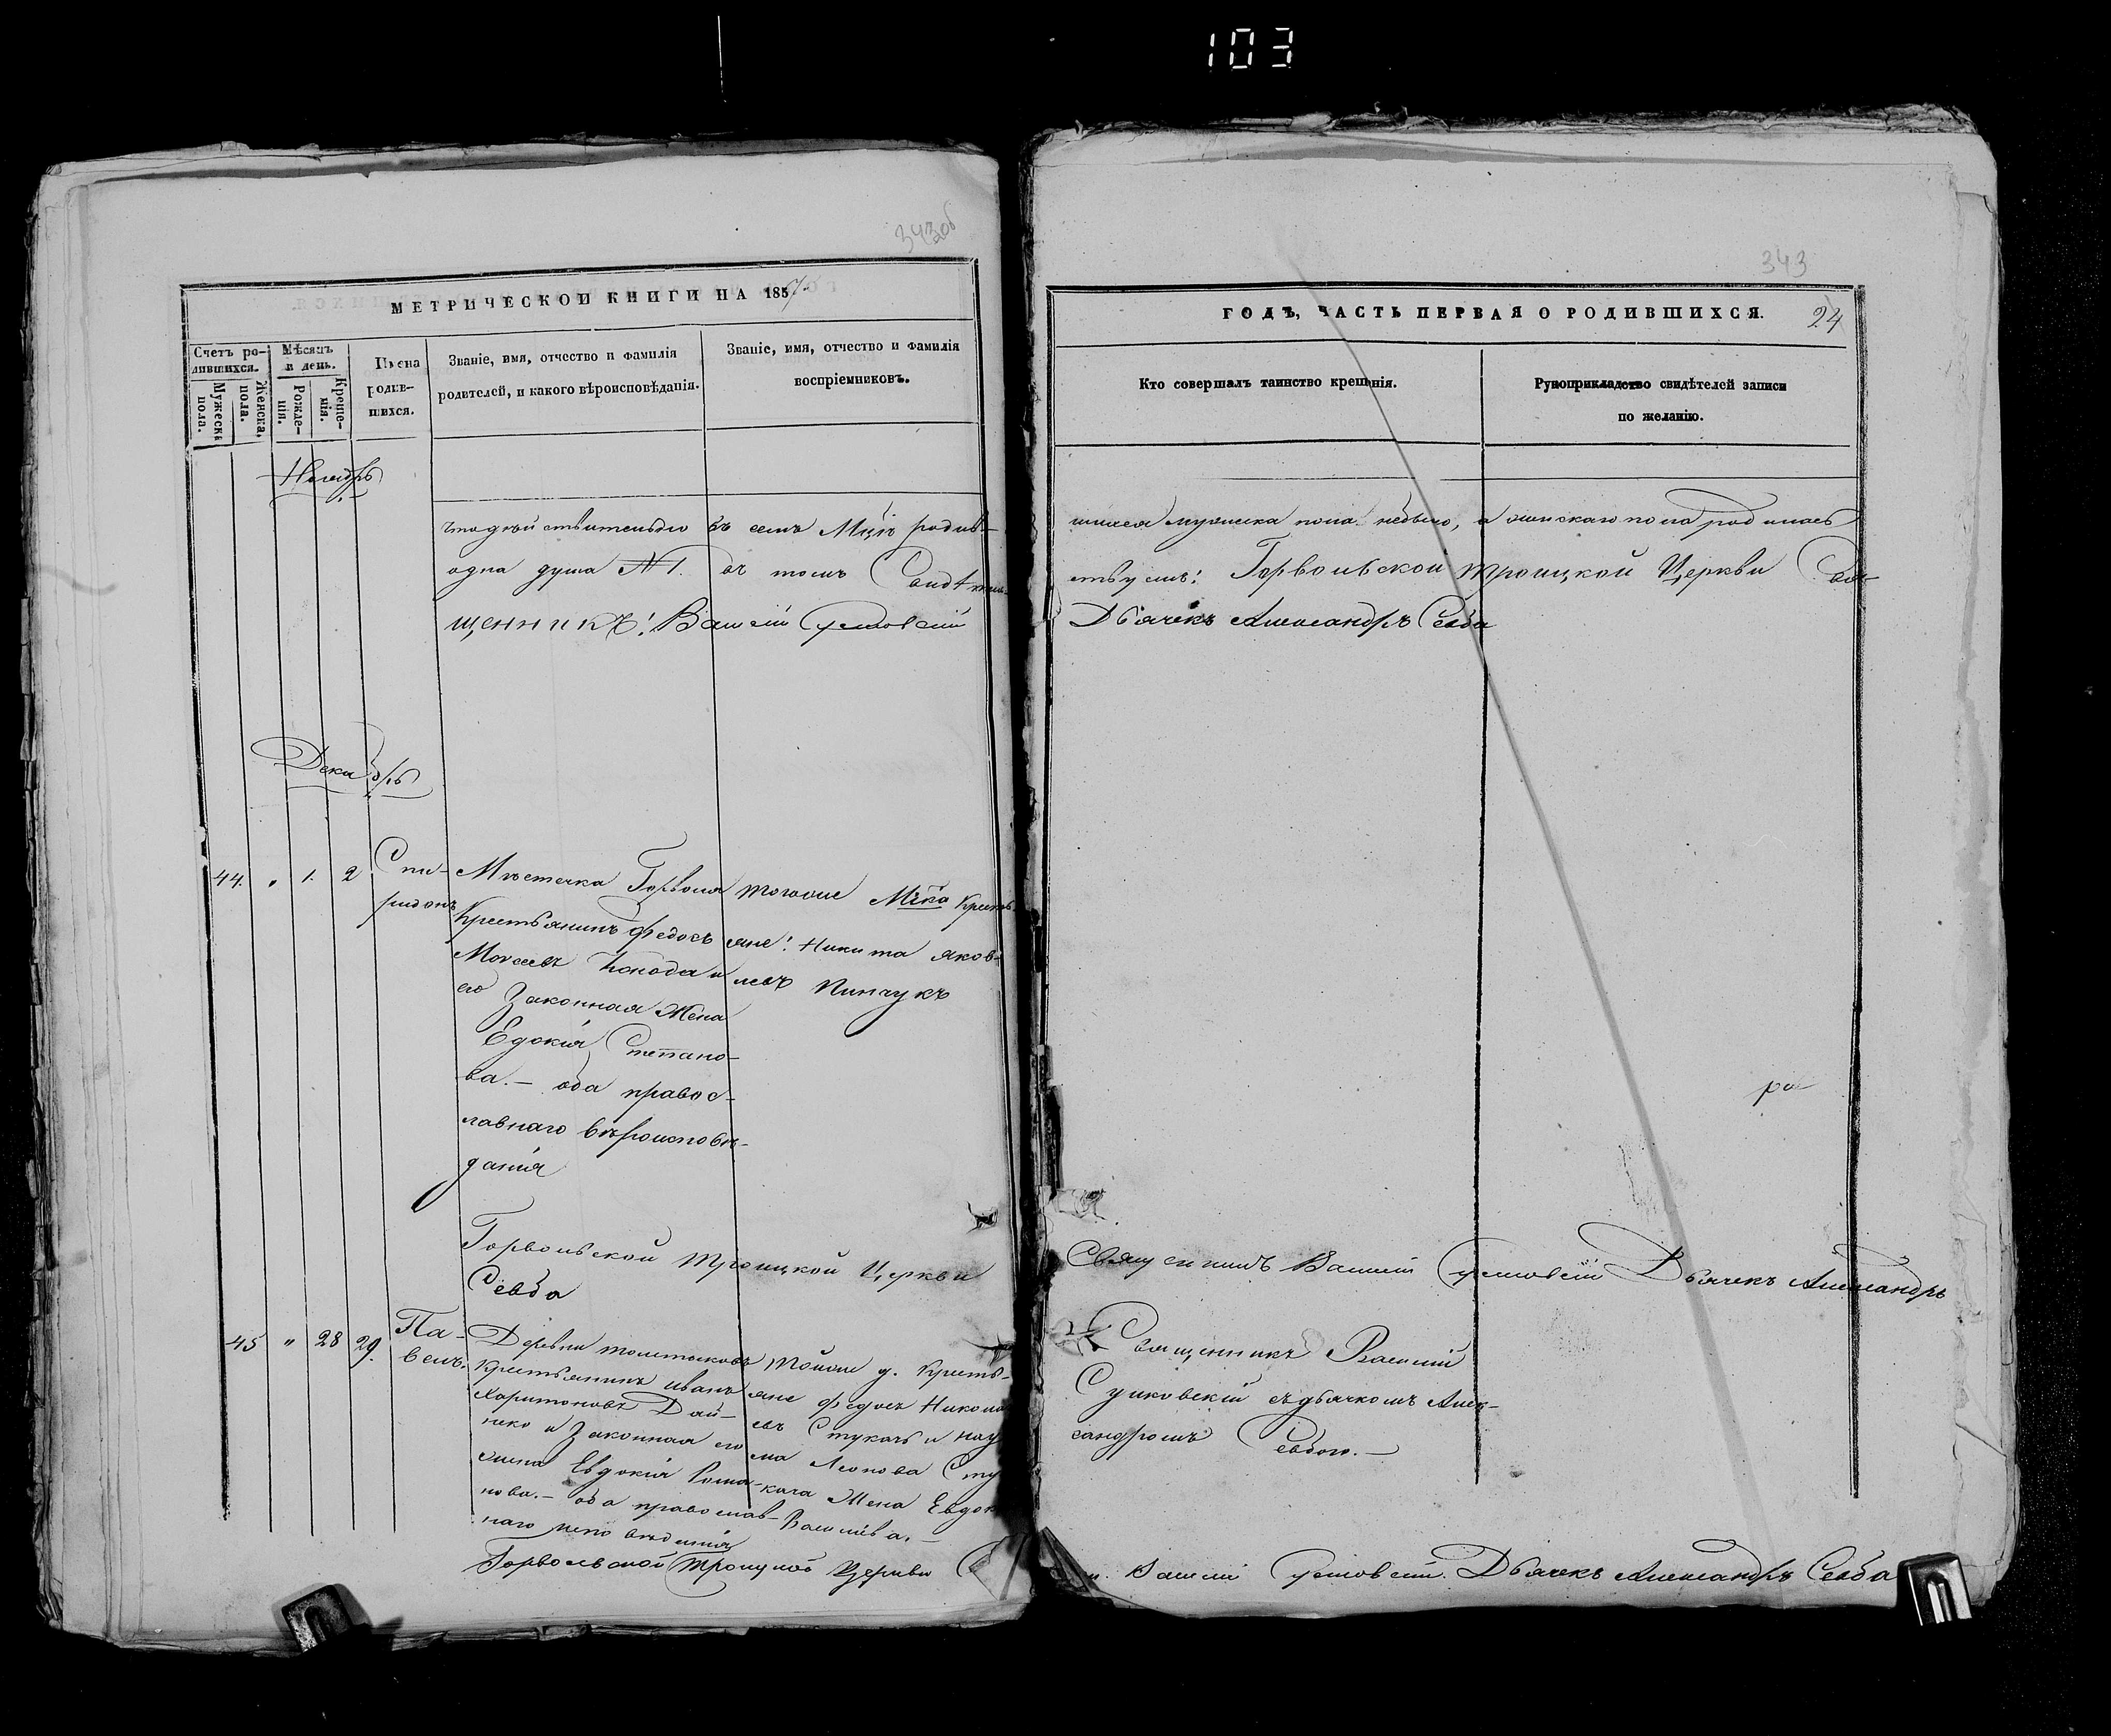 103
343об
МЕТРИЧЕСКОЙ КНИГИ НА 1857
Счетъ ро-
дившихся.
Мужеска
пола.
Женска,
пола.
Мѣсяцъ
и день.
Рожде-
нія.
Креще-
нія.
Имена
родив-
шихся.
Званіе, имя, отчество и фамилія
родителей, и какого вѣроисповѣданія.
Званіе, имя, отчество и фамилія
воспріемниковъ.
Ноябрь
что действительно въ семъ Мцѣ родив-
одна душа №1. въ томъ
щенникъ: Василій
Декабрь
44. " 1. 2
Спи-
ридонъ
Мѣстечка Горволя
Крестьянинъ Федосъ
Моисеевъ и
его Законная Жена
Евдокія Степано-
ва. – оба правос-
лавнаго вѣроисповѣ-
данія
тогоже Мѣчка Кресть-
яне: Никита Яков-
левъ Пинчукъ
Горвольской Троицкой Церкви
Севба
45 " 28 29.
Па-
велъ.
Деревни
Крестьянинъ Иванъ
Харитоновъ Дай-
неко и Законная его
жена Евдокія Рома-
нова. – оба православ-
наго исповѣданія
тойже д. Кресть-
яне Федосъ Никола
евъ Стукачъ и Нау
ма Леонова Сту
кача Жена Евдок
Васильева. –
Горвольской Троицкой Церкви
343
ГОДЪ, ЧАСТЬ ПЕРВАЯ О РОДИВШИХСЯ.
24
Кто совершалъ таинство крещенія.
Рукоприкладство свидѣтелей записи
по желанію.
шихся мужеска пола небыло, а женскаго пола родилась
ствуемъ: Горвольской Троицкой Церкви Свя-
Дьячекъ Александръ Севба
ро
Священникъ Василій Дьячекъ Александръ
Священникъ Василій
съ дьячкомъ Алек-
сандромъ Севбою. –
Василій Дьячекъ Александръ Севба